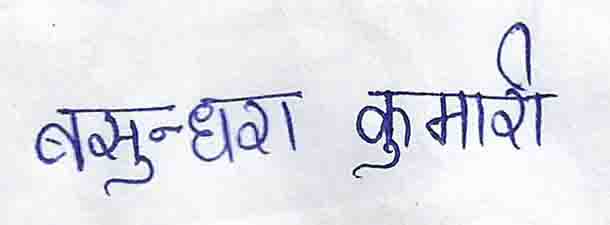 बसुन्धरा कुमारी